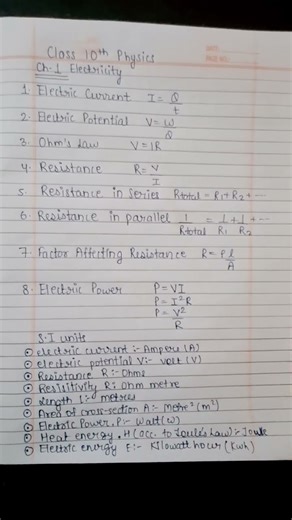 DATE
PAGE NO.:
Class 10th Physics
Ch-1 Electricity
1. Electric Current I = Q/t
2. Electric Potential V = W/Q
3. Ohm's Law V = IR
4. Resistance R = V/I
5. Resistance in Series Rtotal = R1+R2+--
6. Resistance in parallel 1/Rtotal = 1/R1 + 1/R2 + --
7. Factor Affecting Resistance R = ρ l/A
8. Electric Power P = VI
P = I²R
P = V²/R
S.I units
electric current :- Ampere (A)
electric potential V :- volt (V)
Resistance R :- Ohms
Resistivity R :- Ohm metre
Length l :- metres
Area of cross-section A :- Metre² (m²)
Electric Power, P :- Watt (w)
Heat energy, H (acc. to Joule's Law) :- Joule
Electric energy E :- Kilowatt hour (Kwh)